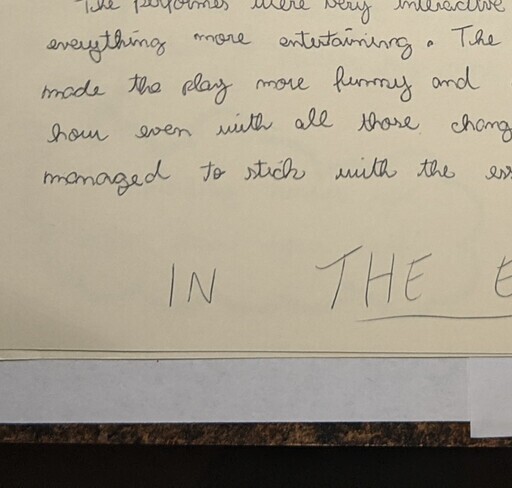 The performers were very interactive
everything more entertaining. The
made the play more funny and
how even with all those chang
managed to stick with the ess
IN THE E